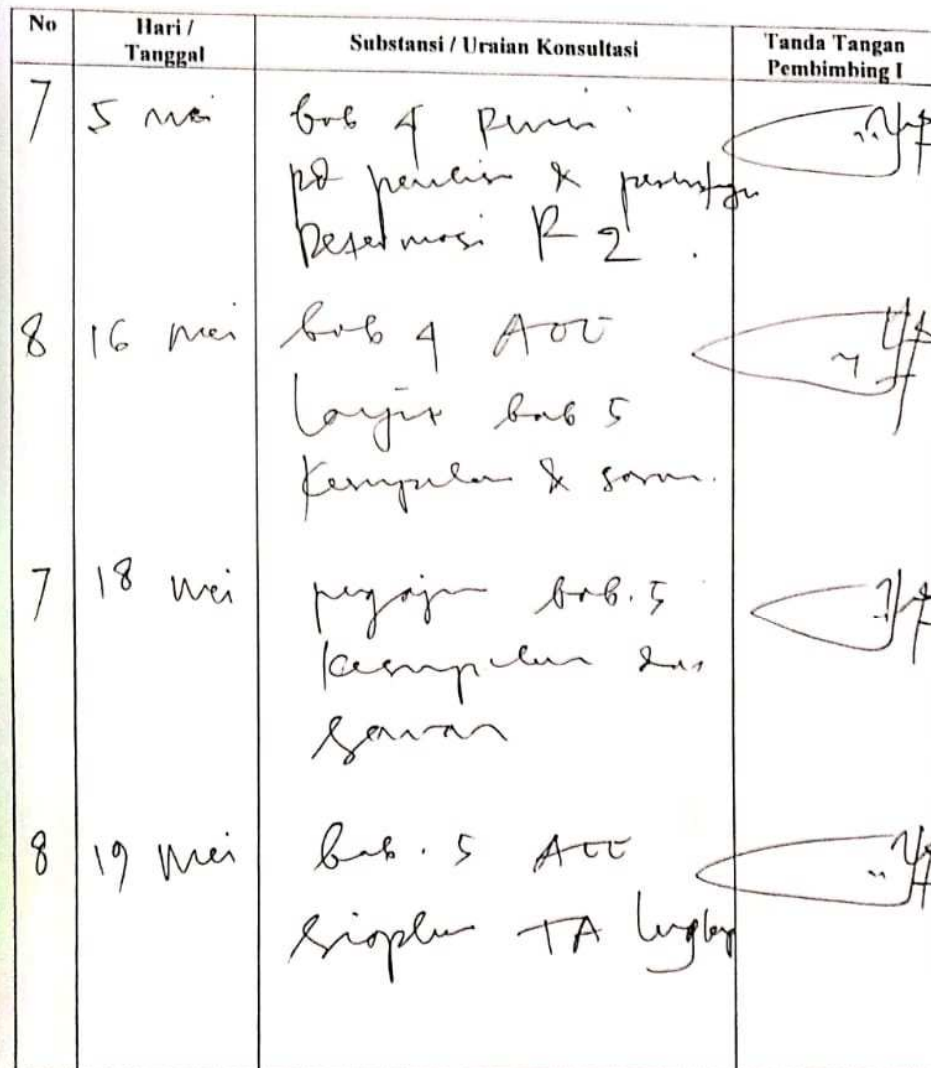 No Hari / Tanggal Substansi / Uraian Konsultasi Tanda Tangan Pembimbing I
7 5 mei bab 4 revisi
pd penulisan &
Determinasi R2.
8 16 mei bab 4 ACC
Lanjut bab 5
Kesimpulan & saran.
7 18 mei pengajuan bab. 5
Kesimpulan dan
Saran
8 19 mei bab. 5 ACC
Siapkan TA lengkap